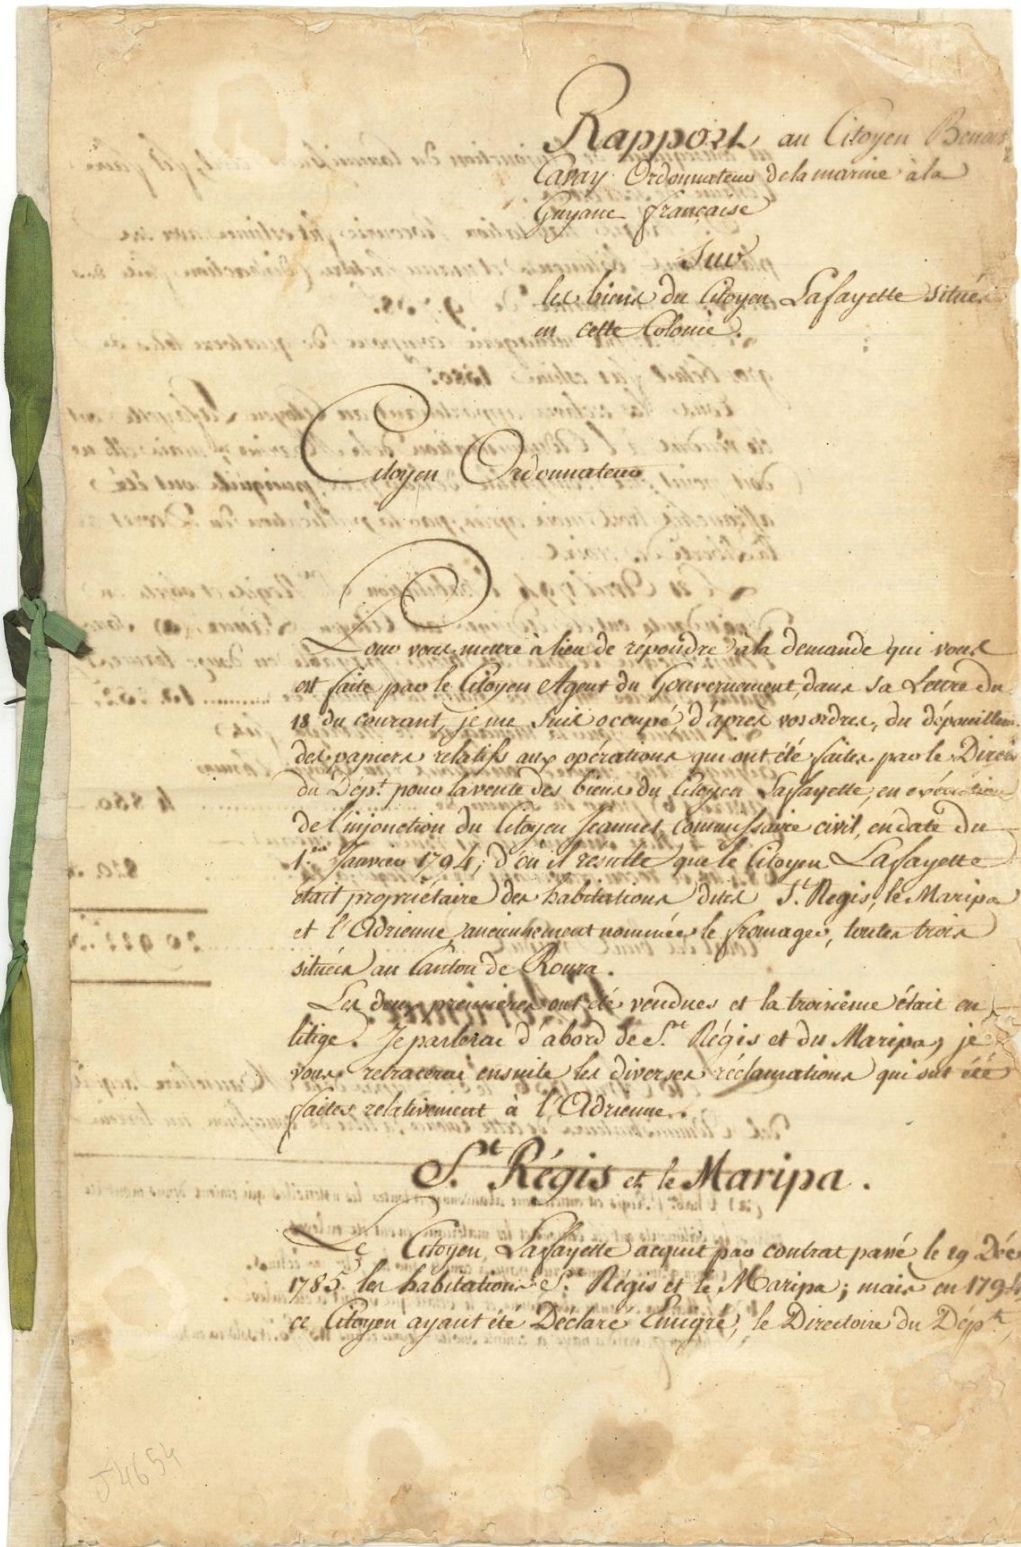 Rapport au Citoyen Benoist
Cavay Ordonnateur de la marine à la
Guyane française
Sur
les biens du Citoyen Lafayette situés
en cette Colonie.
Citoyen Ordonnateur
Pour vous mettre à lieu de répondre à la demande qui vous
est faite par le Citoyen Agent du Gouvernement, dans sa Lettre du
18 du courant, je me suis occupé d'après vos ordres, du dépouillem.
des papiers relatifs aux opérations qui ont été faites par le Direct.
du Dépt. pour la vente des biens du Citoyen Lafayette, en exécution
de l'injonction du Citoyen Jeannet Commissaire civil, en date du
1er. Janvier 1794; d'où il resulte que le Citoyen Lafayette
était propriétaire des habitations dites St. Regis, le Maripa
et l'Adrienne anciennement nommée le fromager, toutes trois
situées au Canton de Roura.
Les deux premières ont été vendues et la troisième était en
litige. Je parlerai d'abord de St. Régis et du Maripa, je
vous retracerai ensuite les diverses réclamations qui ont été
faites relativement à l'Adrienne.
St. Régis et le Maripa.
Le Citoyen Lafayette acquit par contrat passé le 19 Déc
1785 les habitations St. Régis et le Maripa; mais en 1794,
ce Citoyen ayant été Déclaré Emigré, le Directoire du Dépt.
J4654